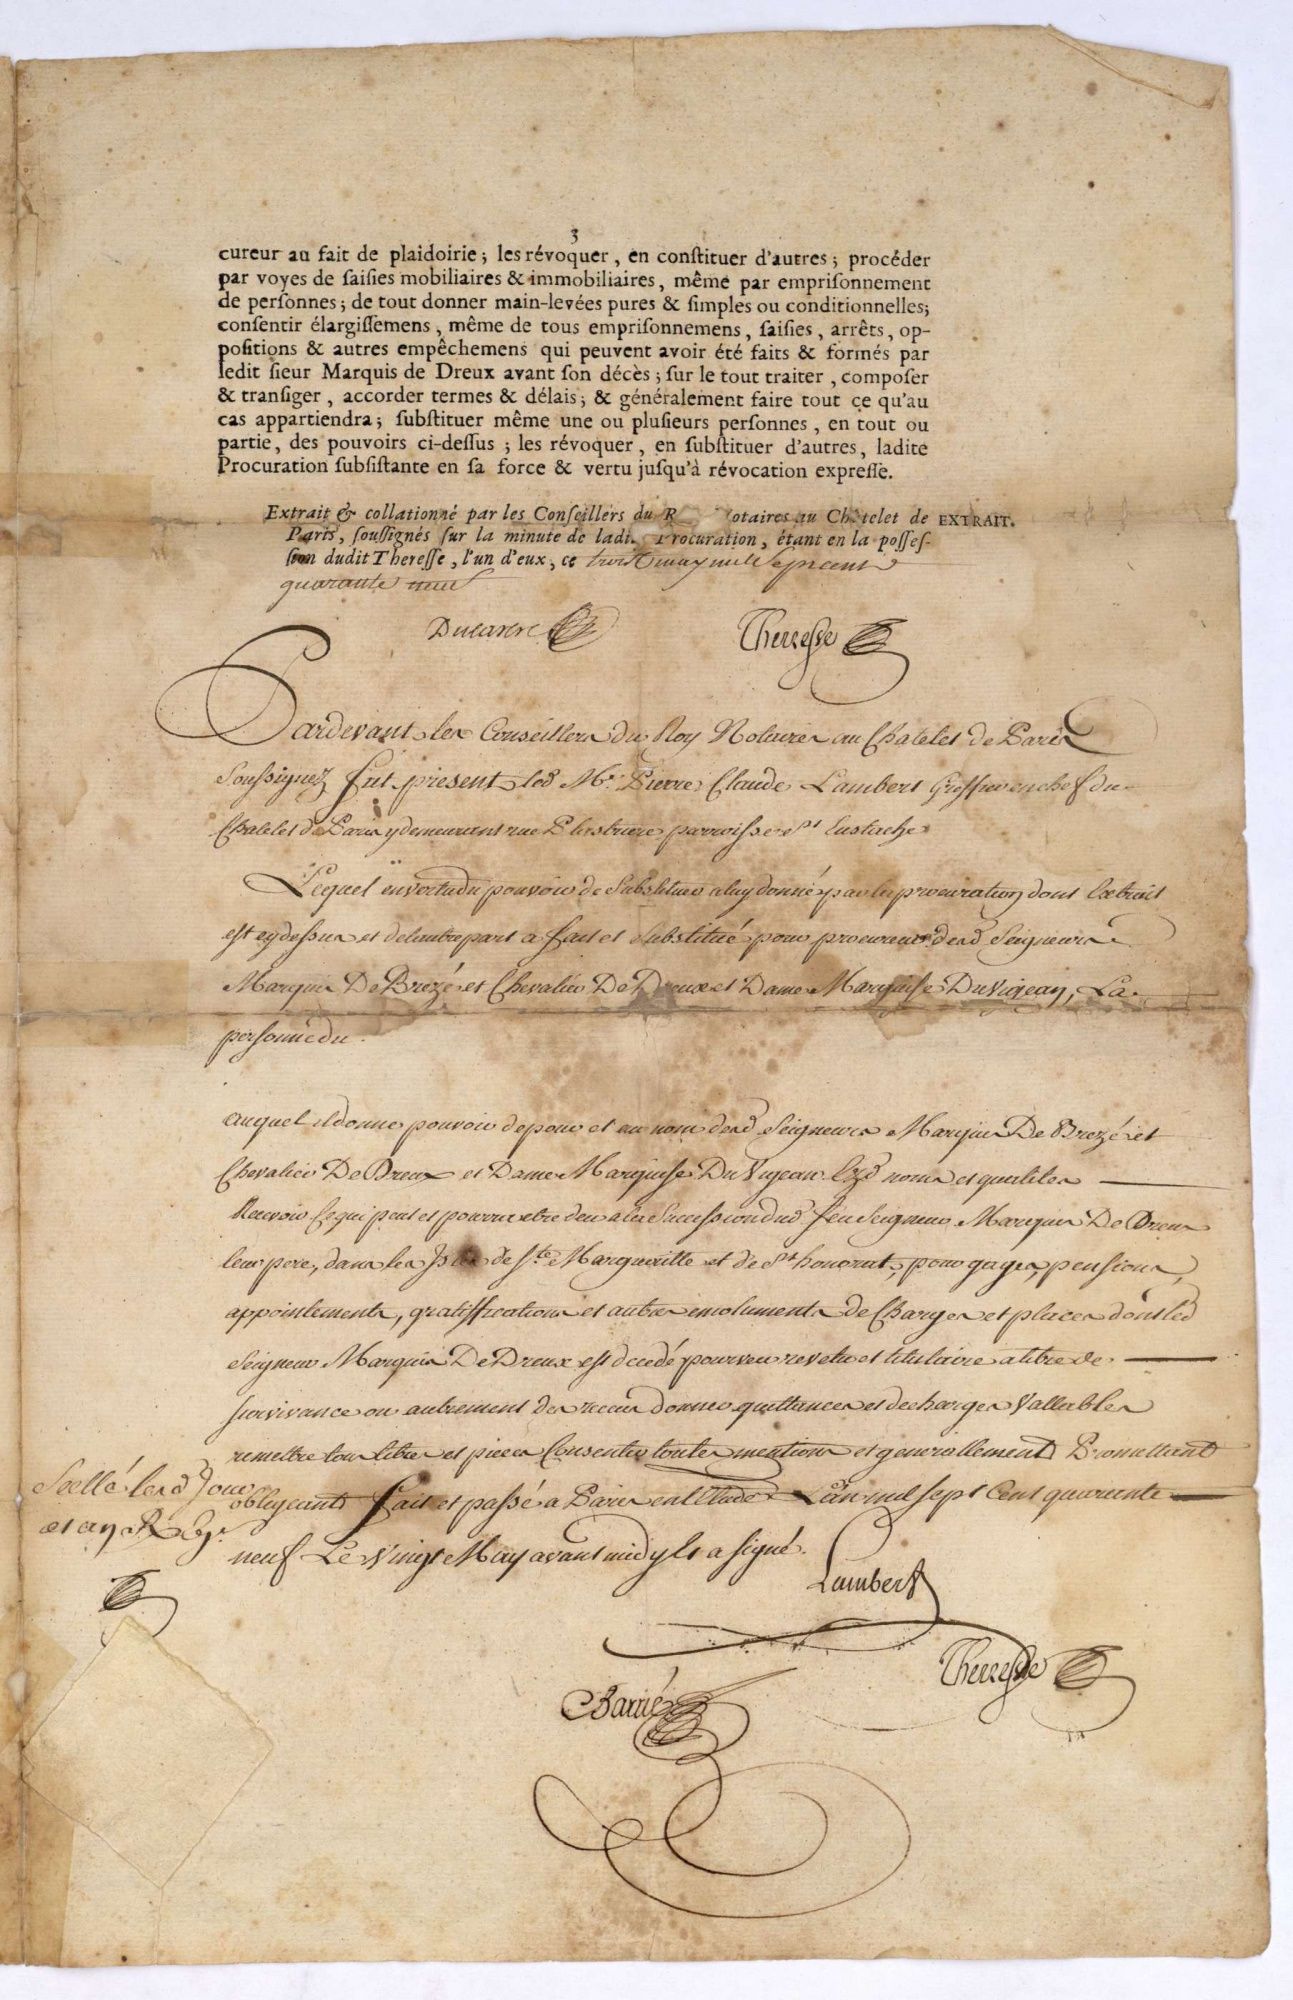 3
cureur au fait de plaidoirie ; les révoquer, en conſtituer d'autres ; procéder
par voyes de ſaiſies mobiliaires & immobiliaires, même par empriſonnement
de perſonnes ; de tout donner main-levées pures & ſimples ou conditionnelles;
conſentir élargiſſemens, même de tous empriſonnemens, ſaiſies, arrêts, op-
poſitions & autres empêchemens qui peuvent avoir été faits & formés par
ledit ſieur Marquis de Dreux avant ſon décès ; ſur le tout traiter, compoſer
& tranſiger, accorder termes & délais ; & généralement faire tout ce qu'au
cas appartiendra ; ſubſtituer même une ou pluſieurs perſonnes, en tout ou
partie, des pouvoirs ci-deſſus ; les révoquer, en ſubſtituer d'autres, ladite
Procuration ſubſiſtante en ſa force & vertu juſqu'à révocation expreſſe.
Extrait & collationné par les Conſeillers du R otaires au Châtelet de EXTRAIT.
Paris, ſouſſignés ſur la minute de ladi Procuration, étant en la poſſeſ-
ſion dudit Thereſſe, l'un d'eux, ce trois may mil Sept cent
quarante neuf
Ducartre Theresse
Pardevant les Conseillers du Roy Notaires au Chatelet de Paris
Soussignez fut present led Mr. Pierre Claude Lambert Greffier en chef du
Chatelet de Paris y demeurant rue Platriere parroisse St Eustache
Lequel en vertu du pouvoir de Substituer a luy donné par la procuration dont l'extrait
est cy dessus et de l'autre part a fait et Substitué pour procureur desd Seigneurs
Marquis De Brezé et Chevalier De Dreux et Dame Marquise Duvigean, La
personne du
auquel il donne pouvoir de pour et au nom desd Seigneurs Marquis De Brezé et
Chevalier De Dreux et Dame Marquise Du Vigean Esd noms et qualites
Recevoir Ce qui peut et pourra etre deu a la Succession dud feu Seigneur Marquis De Dreux
leur pere, dans les Isles de Ste Margueritte et de St honorat, pour gages, pensions,
appointements, gratiffications et autres emoluments de Charges et places dont led
Seigneur Marquis De Dreux est decedé pourveu revetu et titulaire a titre de
survivance ou autrement des receus donner quittances et decharges Vallables
remettre tous titres et pieces Consentir toutes mentions et generallement Promettant
obligeant fait et passé a Paris en l'Etude L'an mil sept Cent quarante
neuf Le Vingt May avant midy et a signé.
Scellé led Jour
Lambert
Theresse
Barrié